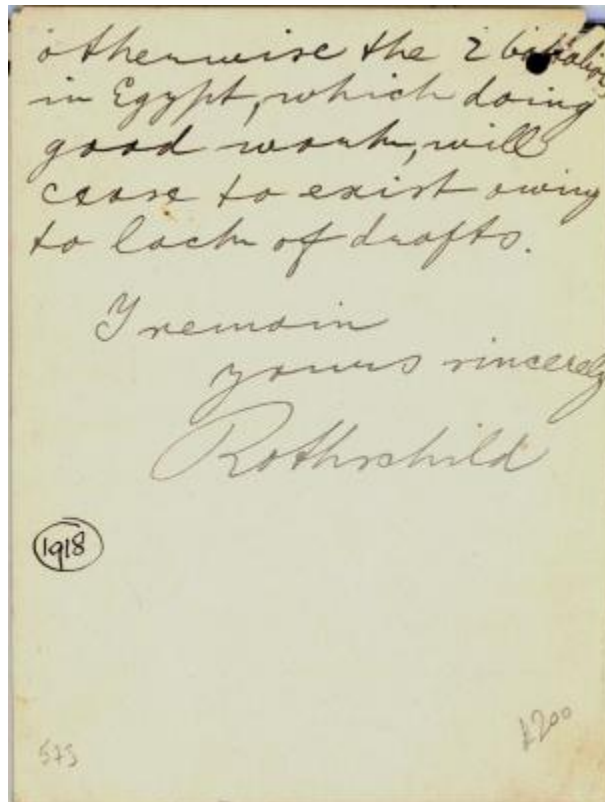 otherwise the 2 battalions
in Egypt, which doing
good work, will
cease to exist owing
to lack of drafts.
I remain
yours sincerely
Rothschild
1918
573
£200